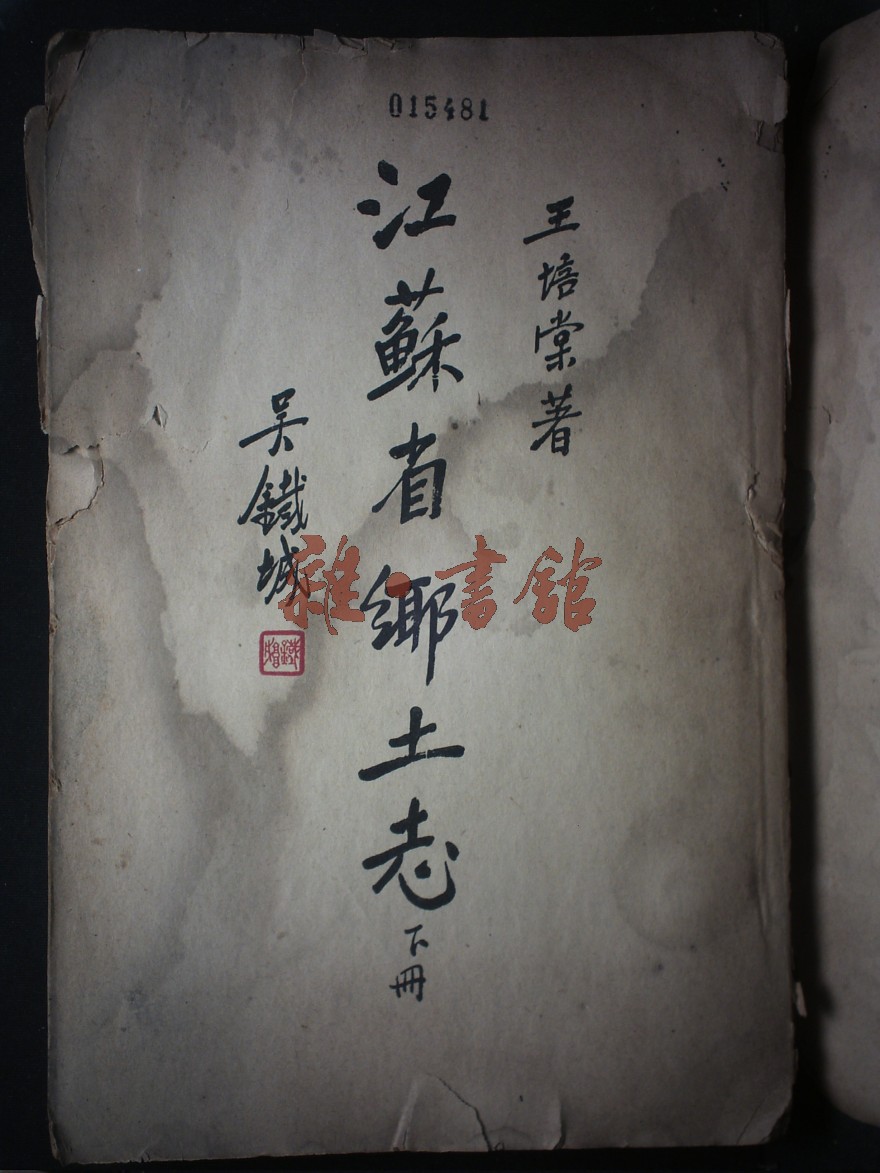 015481
王培棠著
江蘇省鄉土志
下冊
吴鐵城
雜·書館